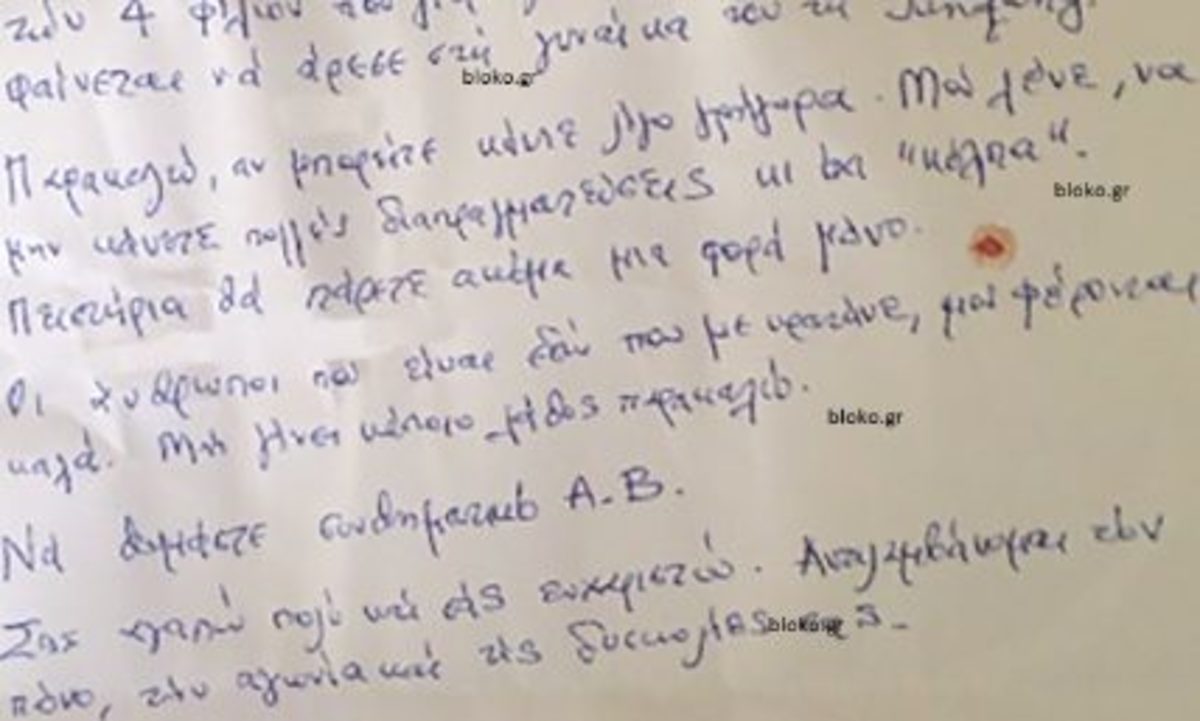 των 4 φίλων του
φαίνεται να άρεσε στη γυναίκα του τη
bloko.gr
Παρακαλώ, αν μπορείτε κάντε λίγο γρήγορα. Μου λένε, να
μην κάνετε πολλές διαπραγματεύσεις κι θα "κόλπα".
bloko.gr
Πειστήρια θα πάρετε ακόμα μια φορά μόνο.
Οι άνθρωποι που είναι εδώ που με κρατάνε, μου φέρονται
καλά. Μην γίνει κάποιο λάθος παρακαλώ.
bloko.gr
Να θυμάστε συνθηματικό Α.Β.
Σας αγαπώ πολύ και σας ευχαριστώ. Αντιλαμβάνομαι τον
πόνο, την αγωνία και τις δυσκολίες σας.
bloko.gr